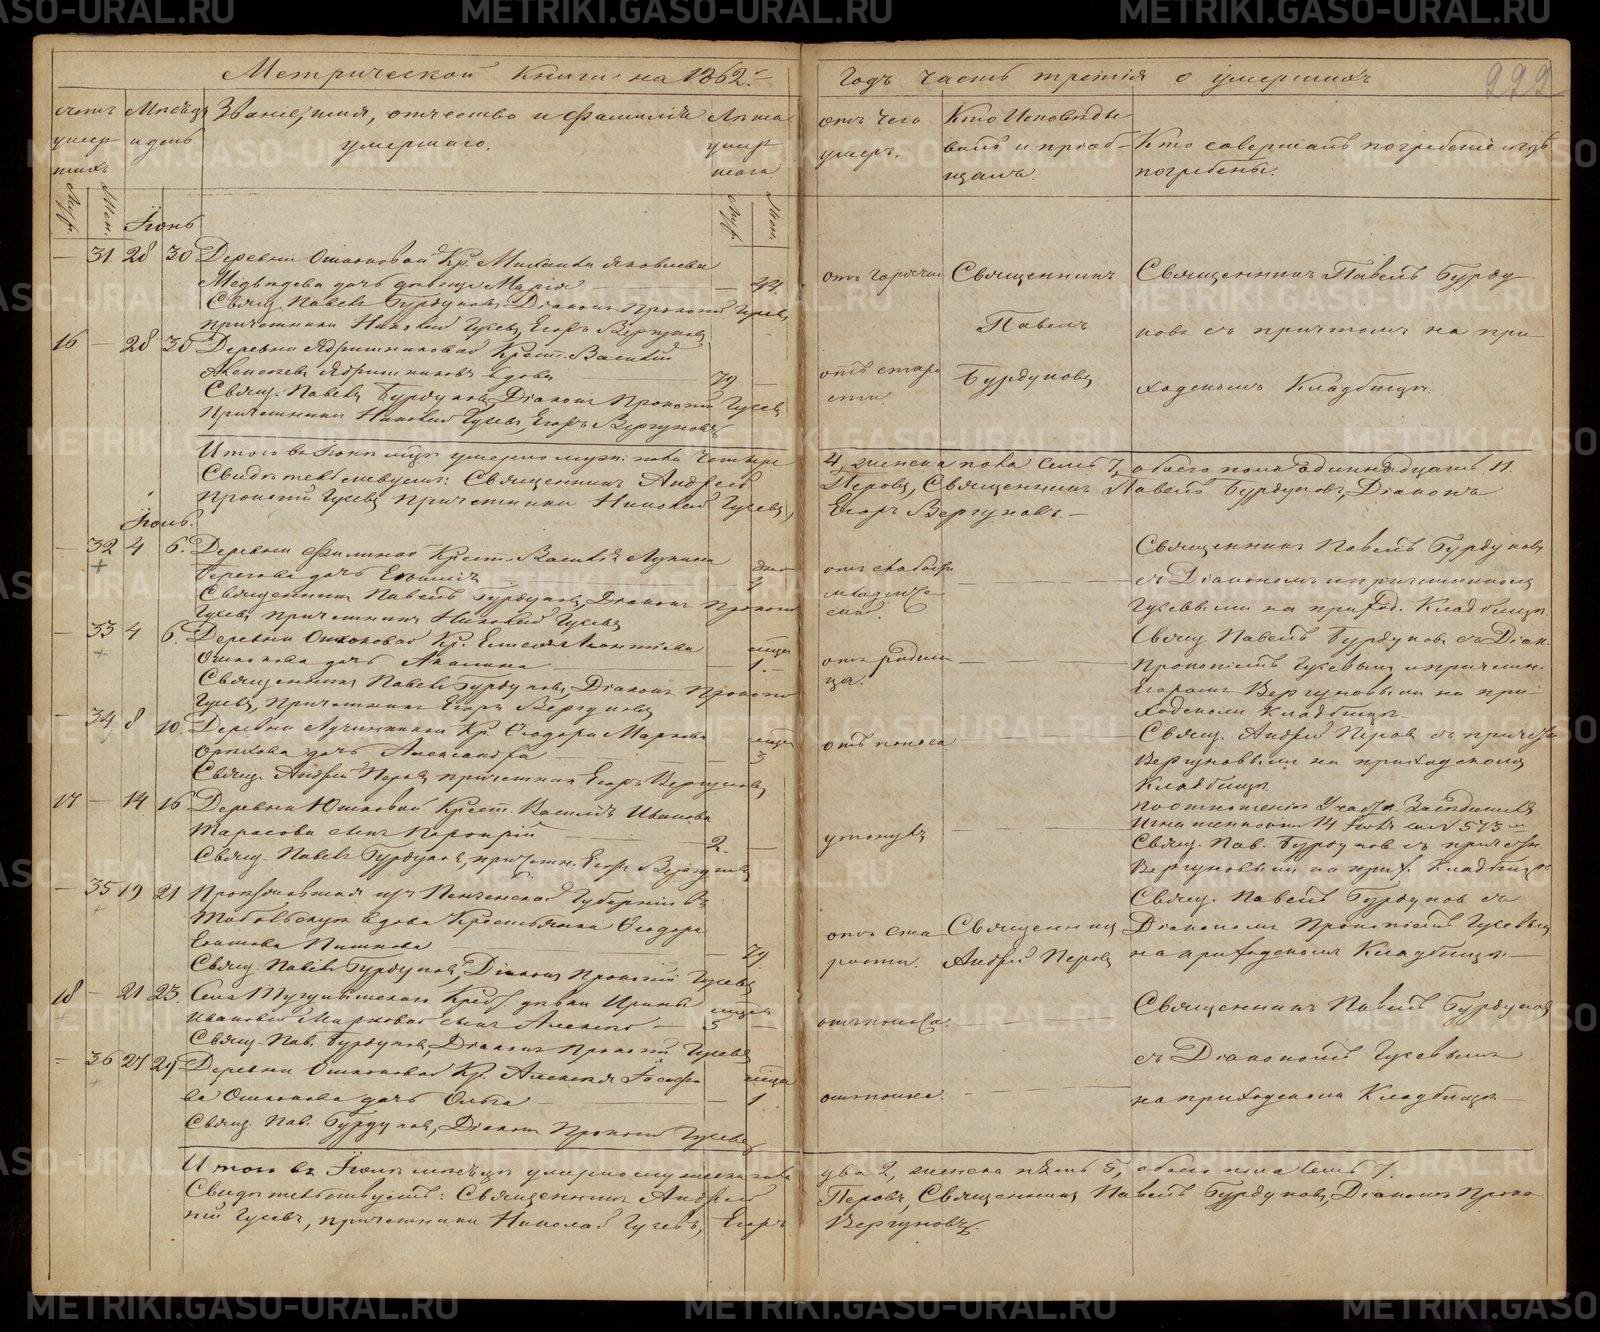 Метрической Книги на 1862й
Годъ часть третія о умершихъ
222
Счетъ умер шихъ
Муж. Жен.
Мѣсяцъ и день
Званіе, имя, отчество и фамилія умершаго.
Лѣта умер шаго.
Муж. Жен.
отъ чего умеръ.
Кто Исповѣды валъ и пріоб- щалъ.
Кто совершалъ погребеніе и гдѣ погребены.
Іюнь
— 31. 28 30 Деревни Ошкоковой Кр. Михаила Яковлева
Медвѣдева дочь дѣвица Марія
Свящ. Павелъ Бурдуковъ, Діаконъ Прокопій Гусевъ,
причетники Николай Гусевъ, Егоръ Вергуновъ
отъ горячки Священникъ Павелъ Бурдуковъ
Священникъ Павелъ Бурду-
ковъ съ причтомъ на при-
ходскомъ Кладбищѣ.
16 — 28 30 Деревни Ядрышниковой Крест. Василій
Алексѣевъ Ядрышниковъ вдовъ 79 —
Свящ. Павелъ Бурдуковъ, Діаконъ Прокопій Гусевъ
Причетники Николай Гусевъ, Егоръ Вергуновъ
отъ старо сти.
Итого въ Іюнѣ м-цѣ умерло муж. пола четыре
4, женска пола семь 7, обоего пола одиннадцать 11.
Свидѣтельствуемъ: Священникъ Андрей
Перовъ, Священникъ Павелъ Бурдуковъ, Діаконъ
Прокопій Гусевъ Причетники Николай Гусевъ,
Егоръ Вергуновъ. —
Іюль.
— 32 4 6. Деревни Крест. Василія Лукина
дочь
Священникъ Павелъ Бурдуковъ, Діаконъ Прокопій
Гусевъ причетникъ Николай Гусевъ
отъ слабости младенче ской.
Священникъ Павелъ Бурдуковъ
съ Діакономъ и причетникомъ
Гусевыми на приход. Кладбищѣ
— 33 4 6. Деревни Ошкоковой Кр. Леонтіева
Ошкокова дочь Акилина — мѣсяц 1.
Священникъ Павелъ Бурдуковъ, Діаконъ Прокопій
Гусевъ, Причетникъ Егоръ Вергуновъ
отъ родим ца.
Свящ. Павелъ Бурдуковъ съ Діак.
Прокопіемъ Гусевымъ и причетн.
Егоромъ Вергуновымъ на при-
ходскомъ Кладбищѣ
— 34 8 10. Деревни Кр. Ѳедора Маркова
Орѣхова дочь Александра — мѣсяц 3
Свящ. Андрей Перовъ причетникъ Егоръ Вергуновъ
отъ поноса
Свящ. Андрей Перовъ съ причетн.
Вергуновымъ на приходскомъ
Кладбищѣ
17 — 14 16 Деревни Юшковой Крест. Василія Иванова
Тарасова сынъ Порфирій 2. —
Свящ. Павелъ Бурдуковъ, причетн. Егоръ Вергуновъ
утонувъ
По отношенію Участк. Засѣдателя
14 Іюля за № 573м
Свящ. Пав. Бурдуковъ съ причетн.
Вергуновымъ на прих. Кладбищѣ
— 35 19 21 изъ Пензенской Губерніи въ
Тобольскую вдова Крестьянка Ѳеодора
79
Свящ. Павелъ Бурдуковъ, Діаконъ Прокопій Гусевъ
отъ ста рости.
Священникъ Андрей Перовъ
Свящ. Павелъ Бурдуковъ съ
Діакономъ Прокопіемъ Гусевымъ
на приходскомъ Кладбищѣ —
18 — 21 23. Села Крест. дѣвки Ирины
Ивановой Марковой сынъ Алексѣй — мѣсяц 3 —
Свящ. Пав. Бурдуковъ, Діаконъ Прокопій Гусевъ
отъ поноса.
Священникъ Павелъ Бурдуковъ
съ Діакономъ Гусевымъ
на приходскомъ Кладбищѣ —
— 36 27 29 Деревни Ошкоковой Кр. Алексѣя Іосифо
ва Ошкокова дочь Ольга — мѣсяц 1.
Свящ. Пав. Бурдуковъ, Діаконъ Прокопій Гусевъ
отъ поноса.
Итого въ Іюлѣ мѣсяцѣ умерло мужеска пола
два 2, женска пять 5, обоего пола семь 7.
Свидѣтельствуемъ: Священникъ Андрей
Перовъ, Священникъ Павелъ Бурдуковъ, Діаконъ Проко-
пій Гусевъ, причетники Николай Гусевъ, Егоръ
Вергуновъ.
METRIKI.GASO-URAL.RU